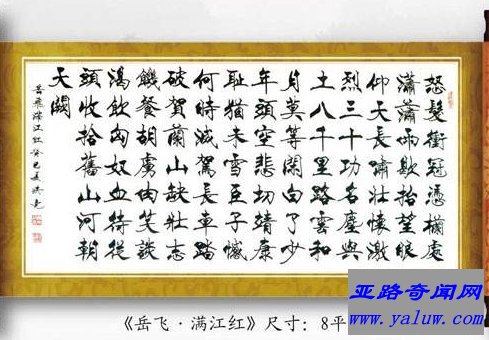 怒髮衝冠憑欄處
瀟瀟雨歇抬望眼
仰天長嘯壯懷激
烈三十功名塵與
土八千里路雲和
月莫等閒白了少
年頭空悲切靖康
耻猶未雪臣子憾
何時滅駕長車踏
破賀蘭山缺壯志
饑餐胡虜肉笑談
渴飲匈奴血待從
頭收拾舊山河朝
天闕
岳飛滿江红癸巳夏
《岳飞·满江红》尺寸：8平
亚路奇闻网
www.yaluw.com